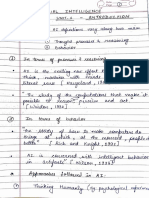 INTELLIGENCE
UNIT-1 - INTRODUCTION
AI definitions vary along two main
① Thought process & reasoning
② behavior
① In terms of process & reasoning
AI is the exciting new effort to make
think, machine with minds
literal sense
"The study of the computations that make it
possible to perceive, reason and act"
[Winston, 1992]
② In terms of behavior
The study of how to make computers do
things at which, at the moment, people are
better" [Rich and Knight, 1991]
AI is concerned with intelligent behavior
in artifacts" [Nilsson, 1998]
* Approaches followed in AI:-
① Thinking Humanly (by psychological